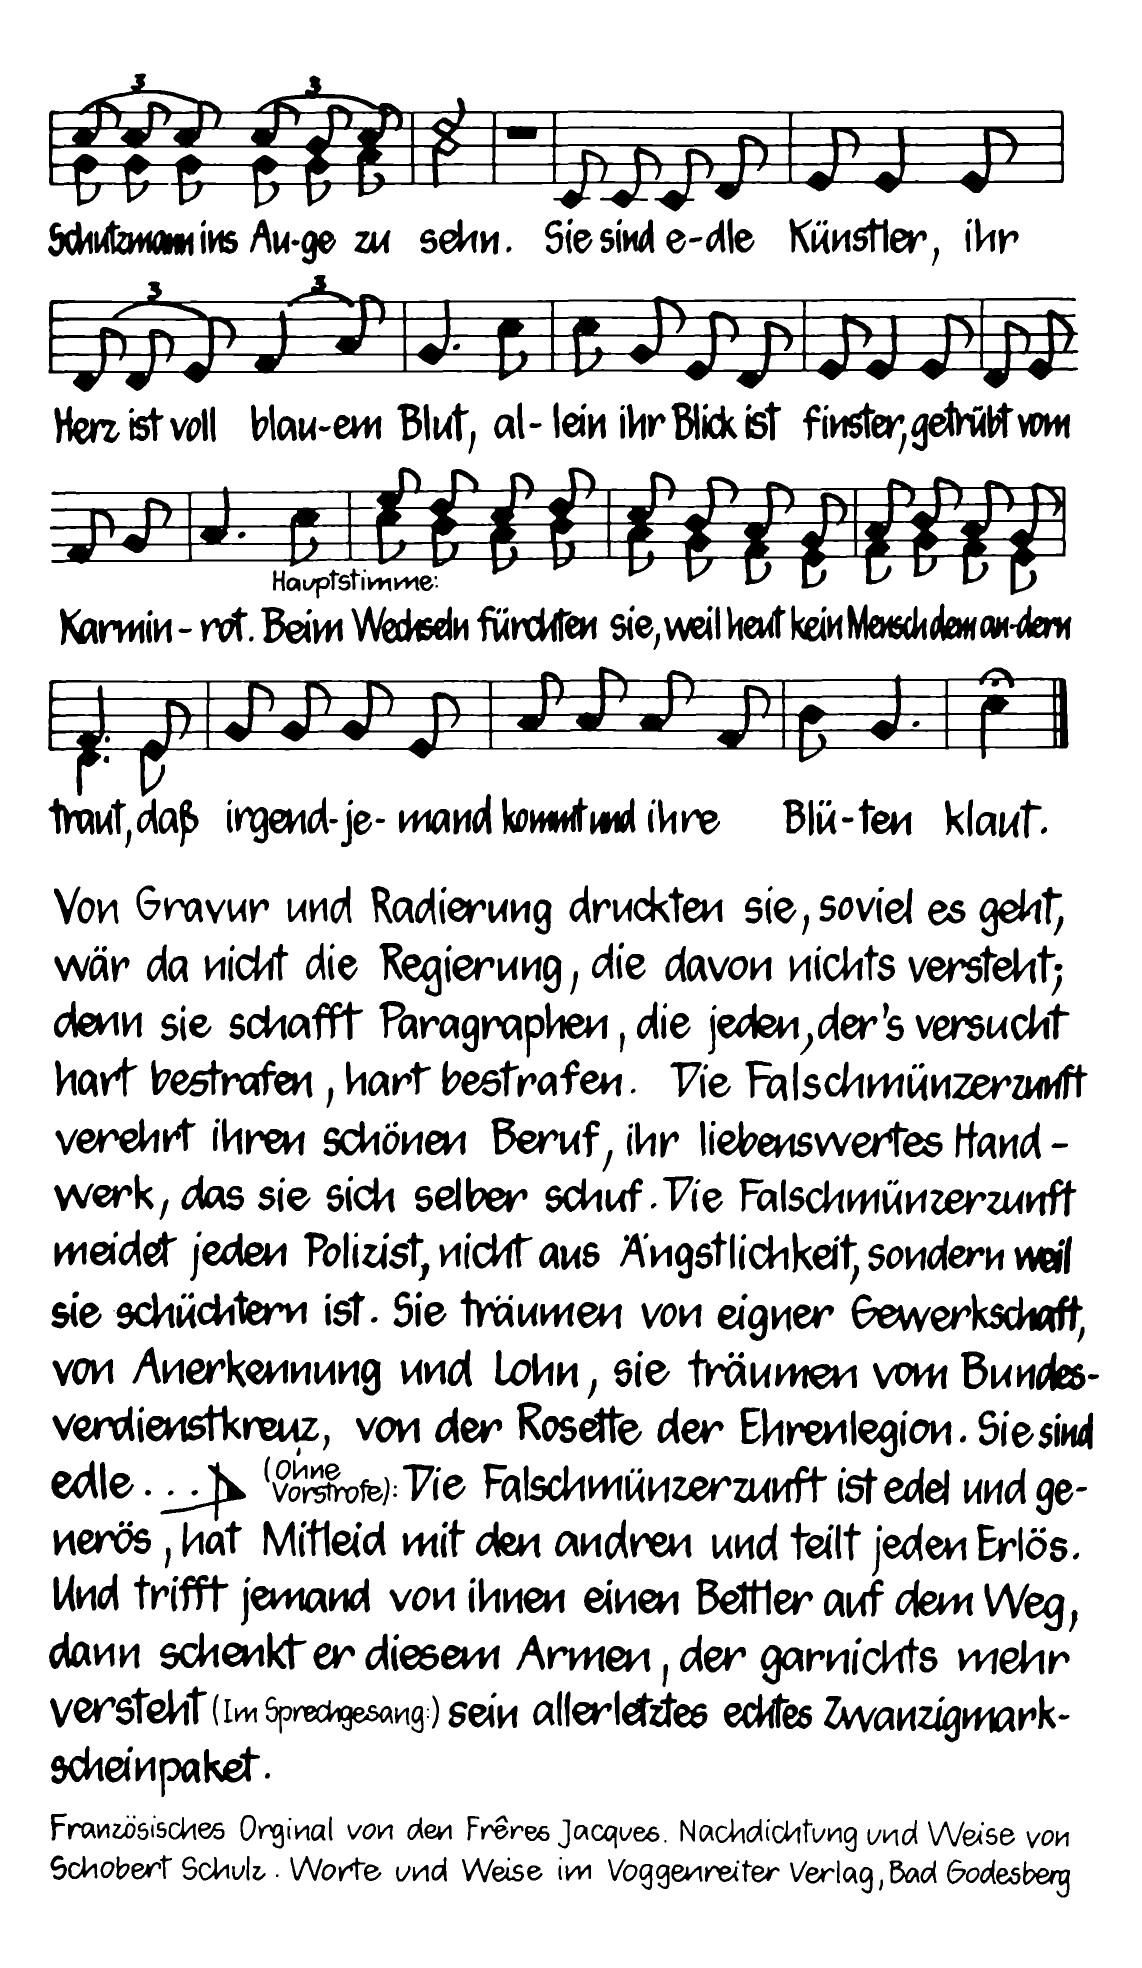 3 3
Schutzmann ins Au-ge zu sehn. Sie sind e-dle Künstler, ihr
3 3
Herz ist voll blau-em Blut, al-lein ihr Blick ist finster, getrübt vom
Hauptstimme:
Karmin-rot. Beim Wechseln fürchten sie, weil heut kein Mensch dem an-dern
traut, daß irgend-je-mand kommt und ihre Blü-ten klaut.
Von Gravur und Radierung druckten sie, soviel es geht,
wär da nicht die Regierung, die davon nichts versteht;
denn sie schafft Paragraphen, die jeden, der's versucht
hart bestrafen, hart bestrafen. Die Falschmünzerzunft
verehrt ihren schönen Beruf, ihr liebenswertes Hand-
werk, das sie sich selber schuf. Die Falschmünzerzunft
meidet jeden Polizist, nicht aus Ängstlichkeit, sondern weil
sie schüchtern ist. Sie träumen von eigner Gewerkschaft,
von Anerkennung und Lohn, sie träumen vom Bundes-
verdienstkreuz, von der Rosette der Ehrenlegion. Sie sind
edle ... (Ohne Vorstrofe): Die Falschmünzerzunft ist edel und ge-
nerös, hat Mitleid mit den andren und teilt jeden Erlös.
Und trifft jemand von ihnen einen Bettler auf dem Weg,
dann schenkt er diesem Armen, der garnichts mehr
versteht (Im Sprechgesang:) sein allerletztes echtes Zwanzigmark-
scheinpaket.
Französisches Orginal von den Frêres Jacques. Nachdichtung und Weise von
Schobert Schulz. Worte und Weise im Voggenreiter Verlag, Bad Godesberg